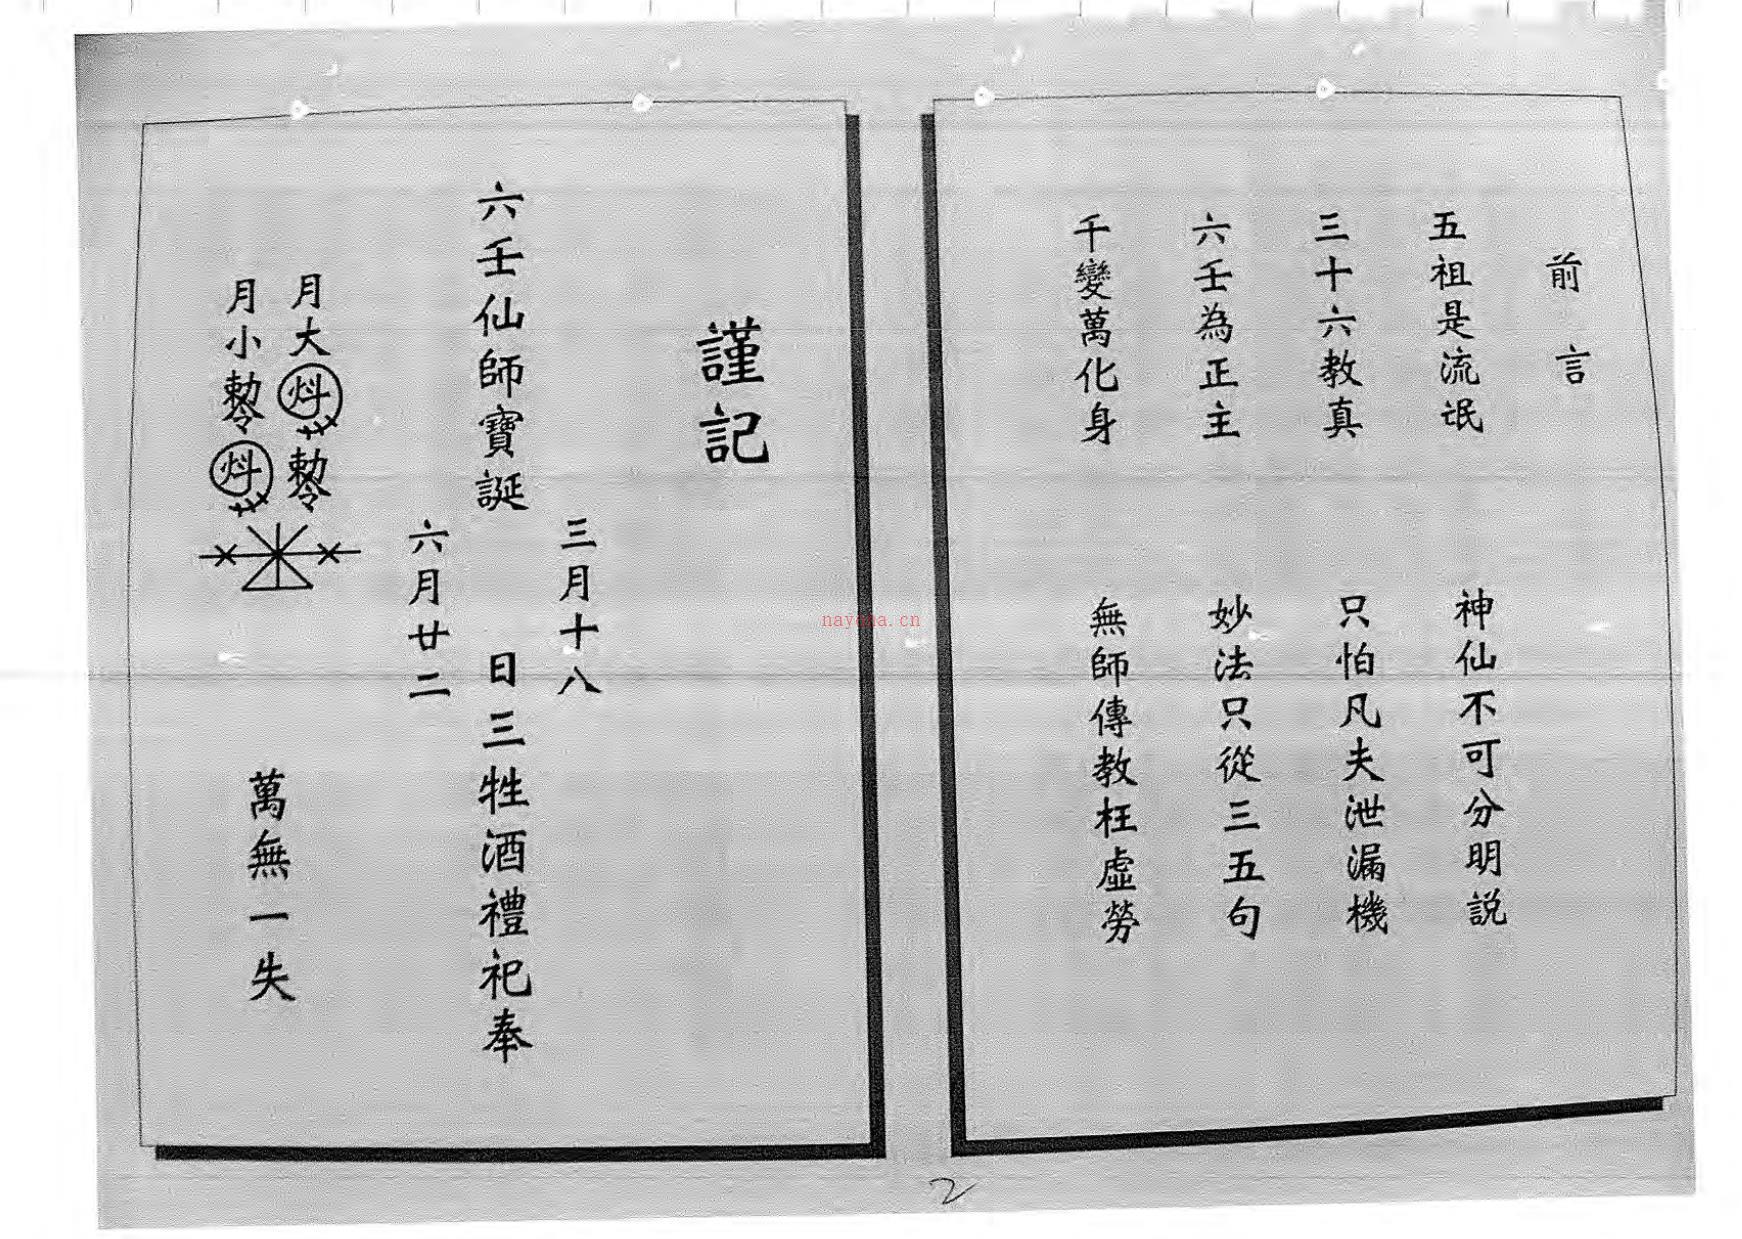 前言
五祖是流氓　神仙不可分明説
三十六教真　只怕凡夫泄漏機
六壬為正主　妙法只從三五句
千變萬化身　無師傳教枉虛勞
謹記
三月十八
六壬仙師寶誕　日三牲酒禮祀奉
六月廿二
月大
月小
萬無一失
nayona.cn
2